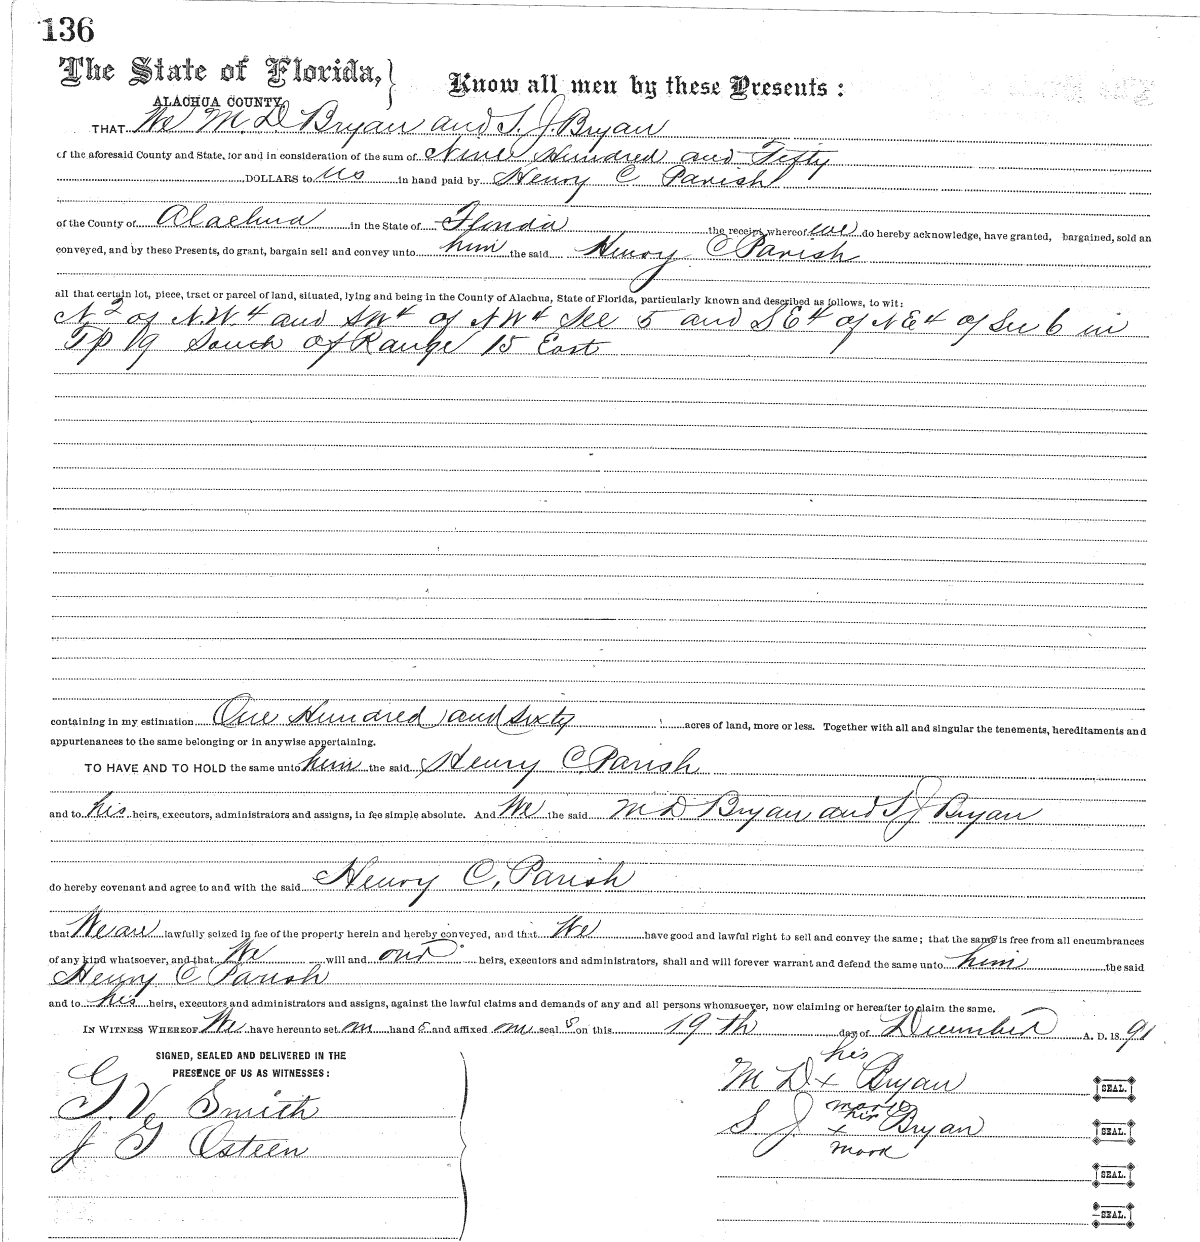 136
The State of Florida, } Know all men by these Presents :
ALACHUA COUNTY.
THAT We M. D Bryan and S. J. Bryan
of the aforesaid County and State, for and in consideration of the sum of Nine Hundred and Fifty
DOLLARS to us in hand paid by Henry C Parish
of the County of Alachua in the State of Florida the receipt whereof we do hereby acknowledge, have granted, bargained, sold an
conveyed, and by these Presents, do grant, bargain sell and convey unto him the said Henry C Parish
all that certain lot, piece, tract or parcel of land, situated, lying and being in the County of Alachua, State of Florida, particularly known and described as follows, to wit:
N 2 of N.W. 4 and SW 4 of NW 4 Sec 5 and SE 4 of NE 4 of Sec 6 in
Tp 19 South of Range 15 East
containing in my estimation One Hundred and Sixty acres of land, more or less. Together with all and singular the tenements, hereditaments and
appurtenances to the same belonging or in anywise appertaining.
TO HAVE AND TO HOLD the same unto him the said Henry C. Parish
and to his heirs, executors, administrators and assigns, in fee simple absolute. And We the said M D Bryan and S J Bryan
do hereby covenant and agree to and with the said Henry C. Parish
that We are lawfully seized in fee of the property herein and hereby conveyed, and that We have good and lawful right to sell and convey the same; that the same is free from all encumbrances
of any kind whatsoever, and that We will and our heirs, executors and administrators, shall and will forever warrant and defend the same unto him the said
Henry C Parish
and to his heirs, executors and administrators and assigns, against the lawful claims and demands of any and all persons whomsoever, now claiming or hereafter to claim the same.
IN WITNESS WHEREOF We have hereunto set our hand s and affixed our seal s on this 19th day of December A. D. 18 91
SIGNED, SEALED AND DELIVERED IN THE
PRESENCE OF US AS WITNESSES:
G. V. Smith
J G Osteen
his
M D x Bryan SEAL.
mark
his
S J x Bryan SEAL.
mark
SEAL.
SEAL.